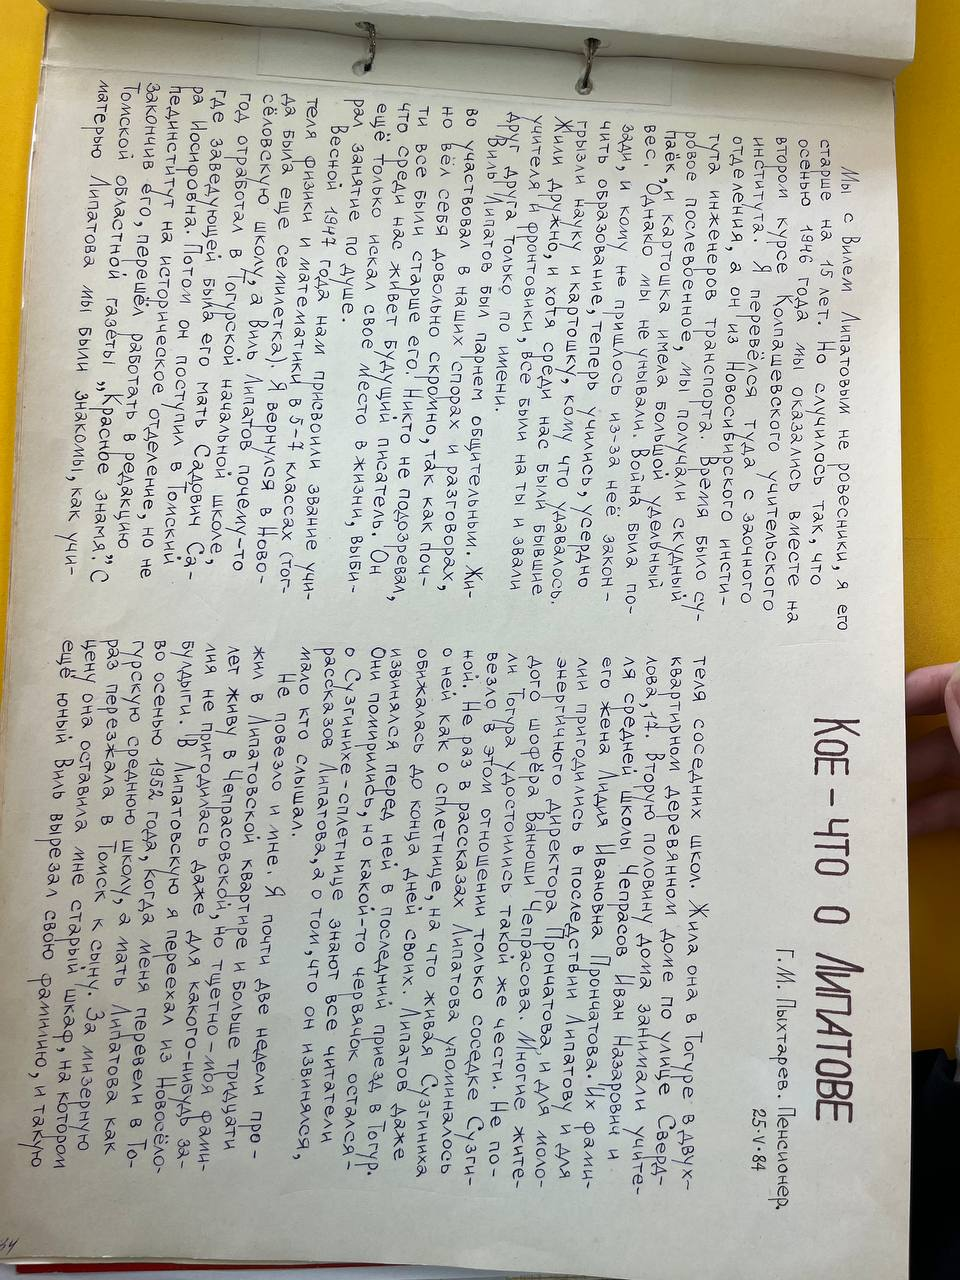 КОЕ-ЧТО О ЛИПАТОВЕ
Г.М. Пыхтарев. Пенсионер.
25.V.84
Мы с Вилем Липатовым не ровесники, я его
старше на 15 лет. Но случилось так, что
осенью 1946 года мы оказались вместе на
втором курсе Колпашевского учительского
института. Я перевёлся туда с заочного
отделения, а он из Новосибирского инсти-
тута инженеров транспорта. Время было су-
ровое послевоенное, мы получали скудный
паёк, и картошка имела большой удельный
вес. Однако мы не унывали. Война была по-
зади, и кому не пришлось из-за неё закон-
чить образование, теперь учились, усердно
грызли науку и картошку, кому что удавалось.
Жили дружно, и хотя среди нас были бывшие
учителя и фронтовики, все были на ты и звали
друг друга только по имени.
Виль Липатов был парнем общительным. Жи-
во участвовал в наших спорах и разговорах,
но вёл себя довольно скромно, так как поч-
ти все были старше его. Никто не подозревал,
что среди нас живёт будущий писатель. Он
ещё только искал свое место в жизни, выби-
рал занятие по душе.
Весной 1947 года нам присвоили звание учи-
теля физики и математики в 5-7 классах (тог-
да была еще семилетка). Я вернулся в Ново-
сёловскую школу, а Виль Липатов почему-то
год отработал в Тогурской начальной школе,
где заведующей была его мать Садович Са-
ра Иосифовна. Потом он поступил в Томский
пединститут на историческое отделение, но не
закончив его, перешёл работать в редакцию
Томской областной газеты „Красное знамя." С
матерью Липатова мы были знакомы, как учи-
теля соседних школ. Жила она в Тогуре в двух-
квартирном деревянном доме по улице Сверд-
лова, 17. Вторую половину дома занимали учите-
ля средней школы Чепрасов Иван Назарович и
его жена Лидия Ивановна Прончатова. Их фами-
лии пригодились в последствии Липатову и для
энергичного директора Прончатова, и для моло-
дого шофёра Ванюши Чепрасова. Многие жите-
ли Тогура удостоились такой же чести. Не по-
везло в этом отношении только соседке Сузги-
ной. Не раз в рассказах Липатова упоминалось
о ней как о сплетнице, на что живая Сузгиниха
обижалась до конца дней своих. Липатов даже
извинялся перед ней в последний приезд в Тогур.
Они помирились, но какой-то червячок остался-
о Сузгинихе-сплетнице знают все читатели
рассказов Липатова, а о том, что он извинялся,
мало кто слышал.
Не повезло и мне. Я почти две недели про-
жил в Липатовской квартире и больше тридцати
лет живу в Чепрасовской, но тщетно-моя фами-
лия не пригодилась даже для какого-нибудь за-
булдыги. В Липатовскую я переехал из Новосёло-
во осенью 1952 года, когда меня перевели в То-
гурскую среднюю школу, а мать Липатова как
раз переезжала в Томск к сыну. За мизерную
цену она оставила мне старый шкаф, на котором
ещё юный Виль вырезал свою фамилию, и такую